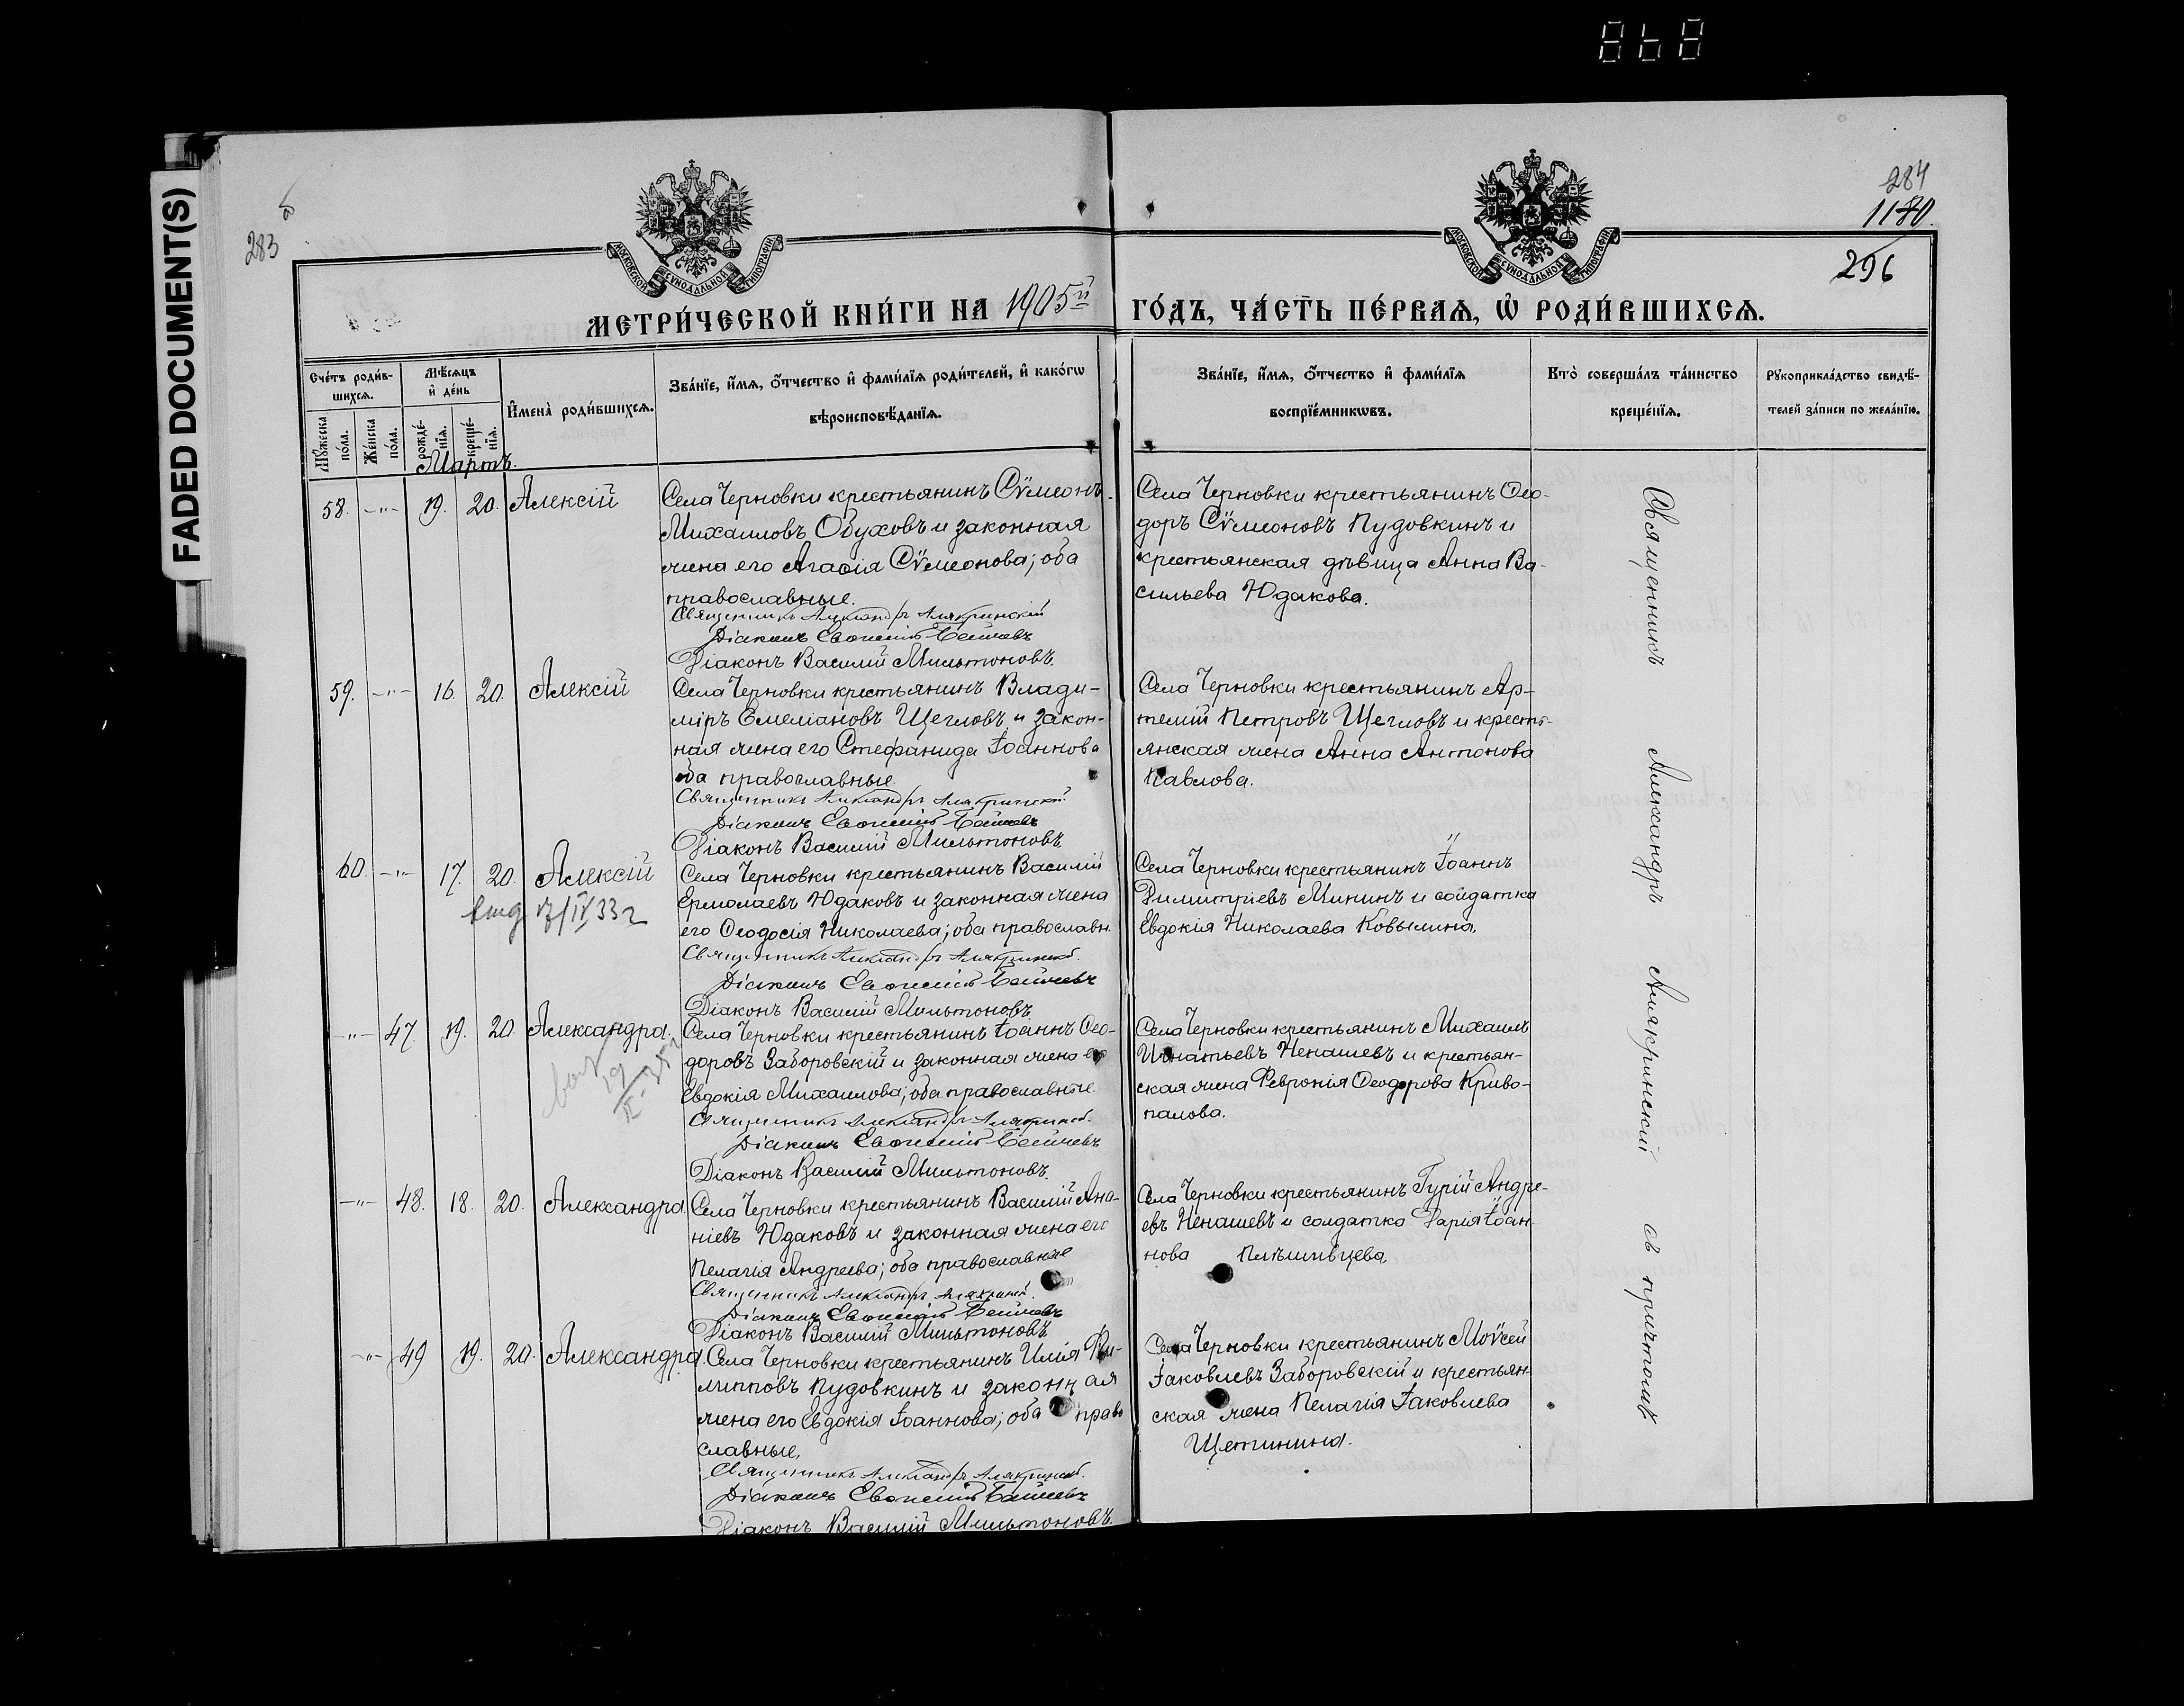 868
FADED DOCUMENT(S)
283
284
1180.
296
МОСКОВСКОЙ СѴНОДАЛЬНОЙ ТИПОГРАФІИ
МОСКОВСКОЙ СѴНОДАЛЬНОЙ ТИПОГРАФІИ
МЕТРИ́ЧЕСКОЙ КНИ́ГИ НА 1905й ГО́ДЪ, ЧА́СТЬ ПЕ́РВАѦ, Ѡ҆ РОДИ́ВШИХСѦ.
Сче́тъ роди́в-
шихсѧ.
Мꙋ́жеска
по́ла.
Же́нска
по́ла.
Мѣ́сѧцъ
и҆ де́нь
рожде́-
нїѧ.
креще́-
нїѧ.
И҆мена̀ роди́вшихсѧ.
Зва́нїе, и҆́мѧ, ѻ҆́тчество и҆ фами́лїѧ роди́телей, и҆ како́гѡ
вѣроисповѣ́данїѧ.
Зва́нїе, и҆́мѧ, ѻ҆́тчество и҆ фами́лїѧ
воспрїе́мникѡвъ.
Кто̀ соверша́лъ та́инство
креще́нїѧ.
Рꙋкоприкла́дство свидѣ́-
телей за́писи по жела́нїю.
Мартъ.
58. -"- 19. 20. Алексій
Села Черновки крестьянинъ Сѵмеонъ
Михаиловъ Обуховъ и законная
жена его Агаѳія Сѵмеонова; оба
православные.
Священникъ Александръ Алякринскій
Діаконъ Евѳимій
Діаконъ Василій Мильтоновъ.
Села Черновки крестьянинъ Ѳео-
доръ Сѵмеоновъ Пудовкинъ и
крестьянская дѣвица Анна Ва-
сильева Юдакова.
59. -"- 16. 20. Алексій
Села Черновки крестьянинъ Влади-
міръ Емеліановъ Щегловъ и закон-
ная жена его Стефанида Іоаннова
оба православные
Священникъ Александръ Алякринскій
Діаконъ Евѳимій
Діаконъ Василій Мильтоновъ.
Села Черновки крестьянинъ Ар-
темій Петровъ Щегловъ и кресть-
янская жена Анна Антонова
Павлова.
60. -"- 17. 20. Алексій
17/IV 33 г
Села Черновки крестьянинъ Василій
Ермолаевъ Юдаковъ и законная жена
его Ѳеодосія Николаева; оба православн.
Священникъ Александръ Алякринскій
Діаконъ Евѳимій
Діаконъ Василій Мильтоновъ.
Села Черновки крестьянинъ Іоаннъ
Димитріевъ Мининъ и солдатка
Евдокія Николаева Ковылина.
-"- 47. 19. 20. Александра.
Села Черновки крестьянинъ Іоаннъ Ѳео-
доровъ Заборовскій и законная жена его
Евдокія Михаилова; оба православные.
Священникъ Александръ Алякринскій.
Діаконъ Евѳимій
Діаконъ Василій Мильтоновъ.
Села Черновки крестьянинъ Михаилъ
Игнатьевъ Ненашевъ и крестьян-
ская жена Феvронія Ѳеодорова Криво-
палова.
-"- 48. 18. 20. Александра.
Села Черновки крестьянинъ Василій Ана-
ніевъ Юдаковъ и законная жена его
Пелагія Андреева; оба православные
Священникъ Александръ Алякринскій.
Діаконъ Евѳимій
Діаконъ Василій Мильтоновъ.
Села Черновки крестьянинъ Гурій Андре-
евъ Ненашевъ и солдатка Дарія Іоан-
нова
-"- 49 19. 20. Александра.
Села Черновки крестьянинъ Илія Фи-
липповъ Пудовкинъ и законная
жена его Евдокія Іоаннова; оба право
славные.
Священникъ Александръ Алякринскій.
Діаконъ Евѳимій
Діаконъ Василій Мильтоновъ.
Села Черновки крестьянинъ Моѵсей
Іаковлевъ Заборовскій и крестьян-
ская жена Пелагія Іаковлева
Щетинина.
Священникъ Александръ Алякринскій съ причтомъ